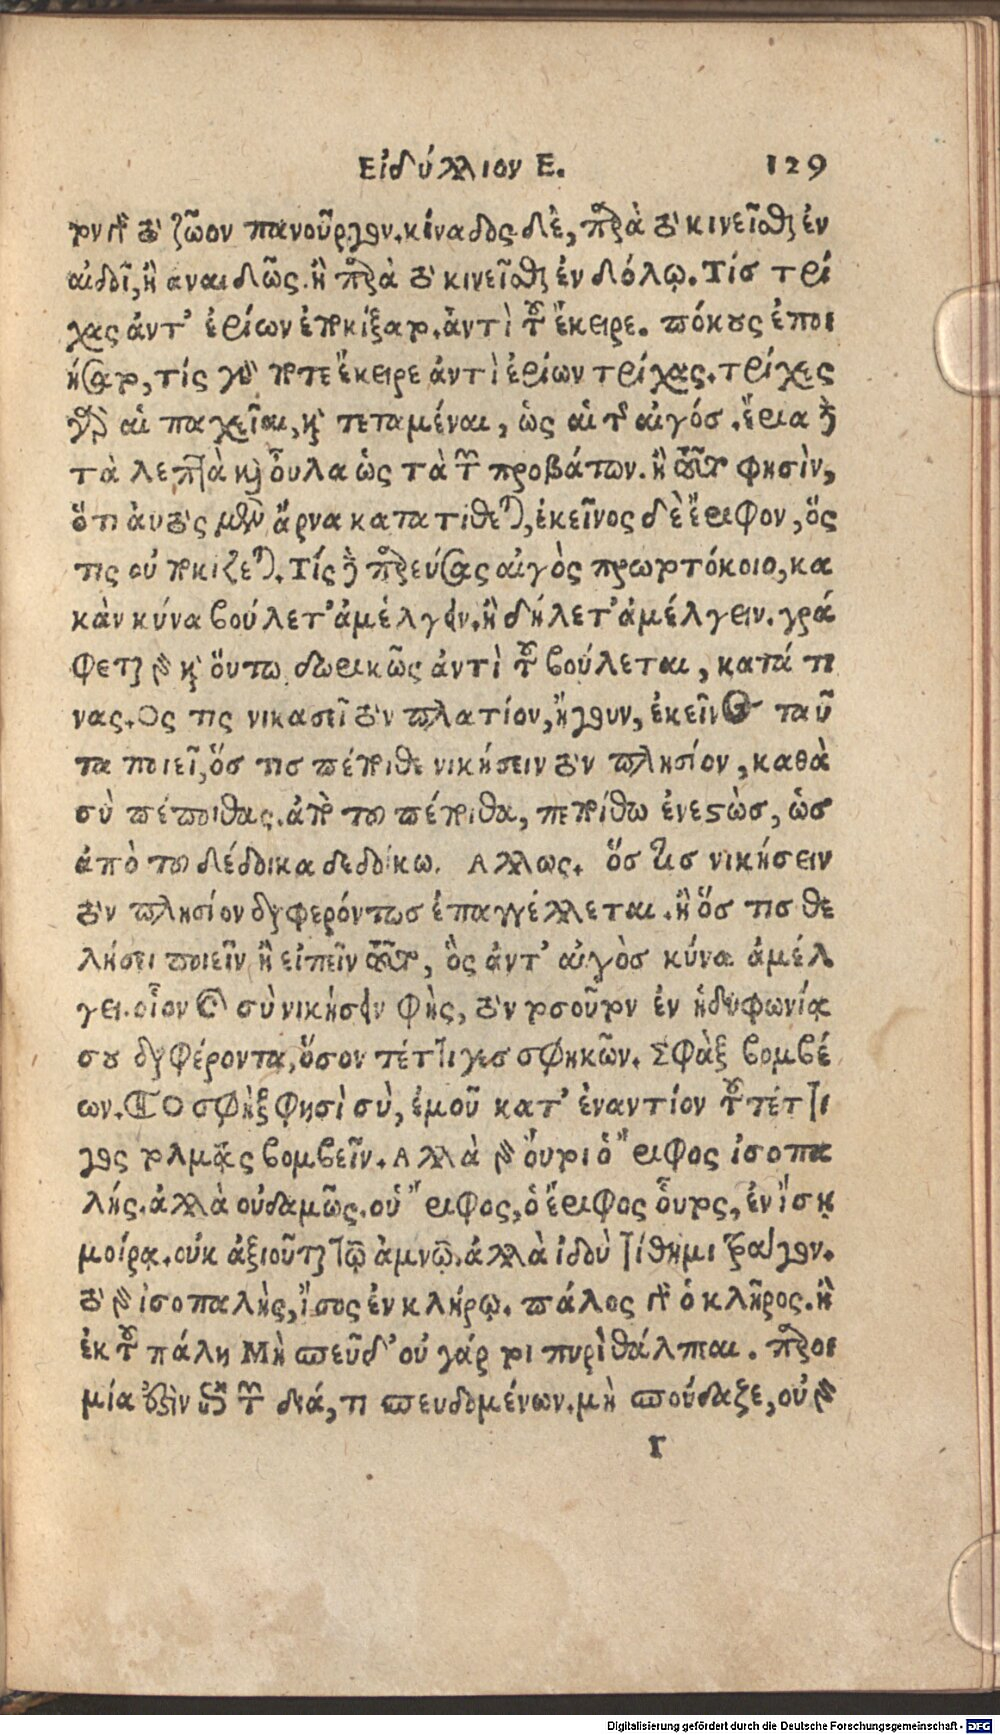 Εἰδύλλιον Ε. 129
γάρ τὸ ζῶον πανοῦργον. κίναδος δὲ, παρὰ τὸ κινεῖσθαι ἐν
αἰδοῖ, ἢ ἀναιδῶς. ἢ παρὰ τὸ κινεῖσθαι ἐν δόλῳ. Τίς τρί
χας ἀντ' ἐρίων ἐποκίξατο. ἀντὶ τοῦ ἔκειρε. πόκους ἐποι
ήσατο, τίς γὰρ ποτε ἔκειρε ἀντὶ ἐρίων τρίχας. τρίχες
γὰρ αἱ παχεῖαι, καὶ τεταμέναι, ὡς αἱ τῆς αἰγός. ἔρια δὲ
τὰ λεπτὰ καὶ οὖλα ὡς τὰ τῶν προβάτων. ἢ οὕτως φησὶν,
ὅτι αὐτὸς μὲν ἄρνα κατατίθεται, ἐκεῖνος δὲ ἔριφον, ὅς
τις οὐ ποκίζεται. Τίς δὲ παρεύσας αἰγὸς πρωτοτόκοιο, κα
κὰν κύνα βούλετ' ἀμέλγειν. ἢ δήλετ' ἀμέλγειν. γρά
φεται γὰρ καὶ οὕτω δωρικῶς ἀντὶ τοῦ βούλεται, κατά τι
νας. Ος τις νικασεῖ τὸν πλατίον, ἤγουν, ἐκεῖνος ταῦ
τα ποιεῖ, ὅς τις πέποιθε νικήσειν τὸν πλησίον, καθὰ
σὺ πέποιθας. ἀπὸ τοῦ πέποιθα, πεποίθω ἐνεστὼς, ὡς
ἀπὸ τοῦ δέδοικα δεδοίκω. Αλλως. ὅς τις νικήσειν
τὸν πλησίον διαφερόντως ἐπαγγέλλεται. ἢ ὅς τις θε
λήσει ποιεῖν ἢ εἰπεῖν οὕτως, ὃς ἀντ' αἰγὸς κύνα ἀμέλ
γει. οἷον ὡς σὺ νικήσειν φῂς, τὸν τοσοῦτον ἐν ἡδυφωνίᾳ
σου διαφέροντα, ὅσον τέττιγες σφηκῶν. Σφὰξ βομβέ
ων. Ὁ σφὴξ φησὶ σὺ, ἐμοῦ κατ' ἐναντίον τοῦ τέττι
γος τολμᾷς βομβεῖν. Αλλὰ γὰρ οὔτι ὁ ἔριφος ἰσοπα
λής. ἀλλὰ οὐδαμῶς. οὐ ἔριφος, ὁ ἔριφος οὗτος, ἐν ἴσῃ
μοίρᾳ. οὐκ ἀξιοῦται τῷ ἀμνῷ. ἀλλὰ ἰδοὺ τίθημι τράγον.
τὸ γὰρ ἰσοπαλὴς, ἴσος ἐν κλήρῳ. πάλος γὰρ ὁ κλῆρος. ἢ
ἐκ τοῦ πάλη Μὴ σπεῦδ' οὐ γάρ τοι πυρὶ θάλπεαι. παροι
μία ἐστὶν ἐπὶ τῶν διά, τι σπευδομένων. μὴ σπούδαζε, οὐ γὰρ
r
Digitalisierung gefördert durch die Deutsche Forschungsgemeinschaft - DFG